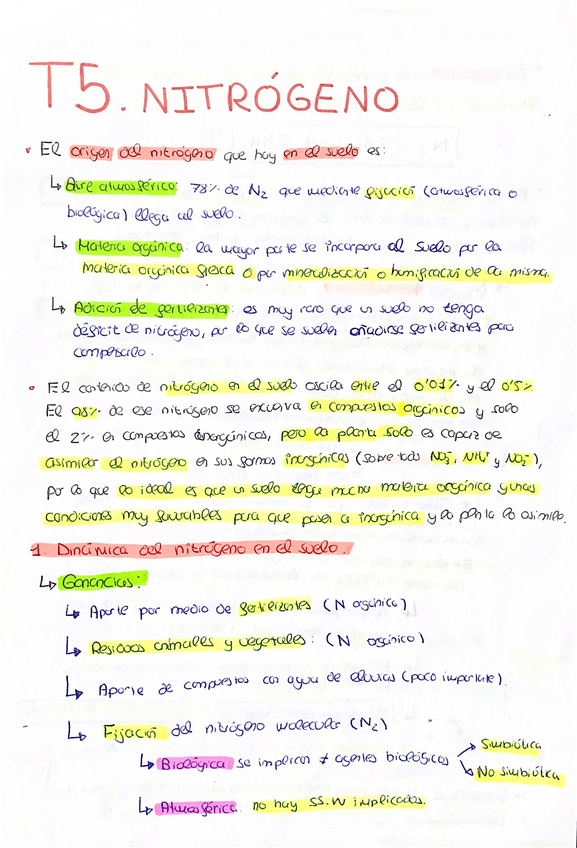 T5. NITRÓGENO
• El origen del nitrógeno que hay en el suelo es:
↳ Aire atmosférico: 78% de N₂ que mediante fijación (atmosférica o
biológica) llega al suelo.
↳ Materia orgánica: la mayor parte se incorpora al suelo por la
materia orgánica fresca o por mineralización o humificación de la misma.
↳ Adición de fertilizantes: es muy raro que un suelo no tenga
déficit de nitrógeno, por lo que se suelen añadirse fertilizantes para
compensarlo.
• El contenido de nitrógeno en el suelo oscila entre el 0'01% y el 0'5%
El 98% de ese nitrógeno se encuentra en compuestos orgánicos y solo
el 2% en compuestos inorgánicos, pero la planta solo es capaz de
asimilar el nitrógeno en sus formas inorgánicas (sobre todo NO₃⁻, NH₄⁺ y NO₂⁻),
por lo que lo ideal es que un suelo tenga mucha materia orgánica y unas
condiciones muy favorables para que pasen a inorgánica y la planta lo asimile.
1. Dinámica del nitrógeno en el suelo.
↳ Ganancias:
↳ Aporte por medio de fertilizantes (N orgánico)
↳ Residuos animales y vegetales: (N orgánico)
↳ Aporte de compuestos con agua de lluvias (poco importante).
↳ Fijación del nitrógeno molecular (N₂)
↳ Biológica se implican ≠ agentes biológicos → Simbiótica
↘ No simbiótica
↳ Atmosférica: no hay SS.VV implicados.